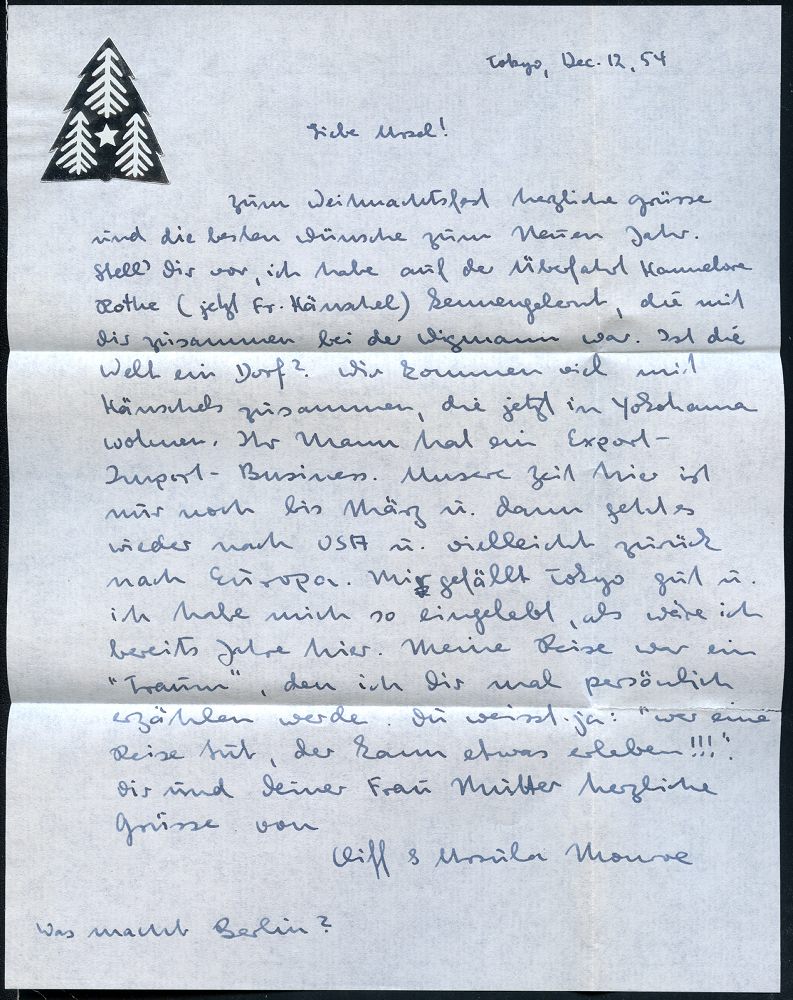 Tokyo, Dec. 12, 54
Liebe Ursel!
Zum Weihnachtsfest herzliche Grüsse
und die besten Wünsche zum Neuen Jahr.
Stell' Dir vor, ich habe auf der Überfahrt Hannelore
Rothe (jetzt Fr. Hänschel) kennengelernt, die mit
Dir zusammen bei der Wigmann war. Ist die
Welt ein Dorf? Wir kommen viel mit
Hänschels zusammen, die jetzt in Yokohama
wohnen. Ihr Mann hat ein Export-
Import-Business. Unsere Zeit hier ist
nur noch bis März u. dann geht es
wieder nach USA u. vielleicht zurück
nach Europa. Mir gefällt Tokyo gut u.
ich habe mich so eingelebt, als wäre ich
bereits Jahre hier. Meine Reise war ein
"Traum", den ich Dir mal persönlich
erzählen werde. Du weisst ja: "wer eine
Reise tut, der kann etwas erleben!!!".
Dir und Deiner Frau Mutter herzliche
Grüsse von
Cliff & Ursula Monroe
Was macht Berlin?